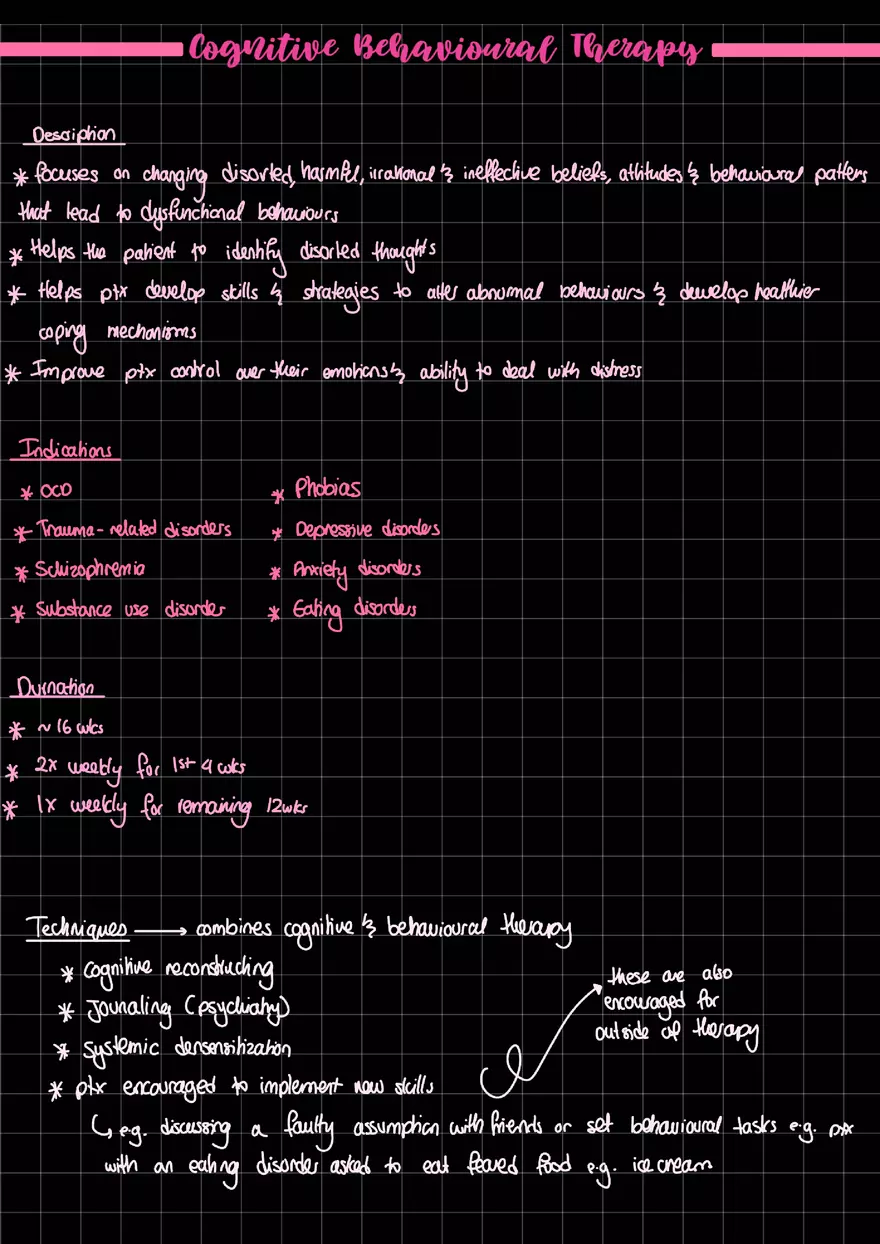 Cognitive Behavioural Therapy
Description
* focuses on changing disorted, harmful, irrational & ineffective beliefs, attitudes & behavioural patters
that lead to dysfunctional behaviours
* Helps the patient to identify disorted thoughts
* Helps ptx develop skills & strategies to alter abnormal behaviours & develop healthier
coping mechanisms
* Improve ptx control over their emotions & ability to deal with distress
Indications
* OCD
* Trauma-related disorders
* Schizophremia
* Substance use disorder
* Phobias
* Depressive disorders
* Anxiety disorders
* Eating disorders
Durnation
* ~16 wks
* 2x weekly for 1st 4 wks
* 1x weekly for remaining 12wks
Techniques → combines cognitive & behavioural therapy
* cognitive reconstructing
* Jounaling (psychiatry)
* systemic densensitization
* ptx encouraged to implement new skills
↳ e.g. discussing a faulty assumption with friends or set behavioural tasks e.g. ptx
with an eating disorder asked to eat feared food e.g. ice cream
these are also
encouraged for
outside of therapy